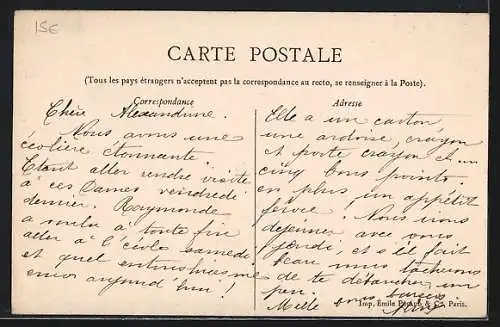 15E
CARTE POSTALE
(Tous les pays étrangers n'acceptent pas la correspondance au recto, se renseigner à la Poste).
Correspondance
Chère Alexandrine.
Nous avons une
écolière étonnante.
Etant aller rendre visite
à ces Dames vendredi
dernier. Raymonde
a voulu à toute fin
aller à l'école samedi
et quel enthousiasme
encor aujourd'hui !
Adresse
Elle a un carton
une ardoise, crayon
et porte crayon et...
cinq bons points.
en plus un appétit
féroce. Nous irons
déjeuner avec vous
jeudi, et s'il fait
beau nous tâcherons
de te débaucher un
peu.
Mille bons baisers
Imp. Emile Pécaud & Cie, Paris.